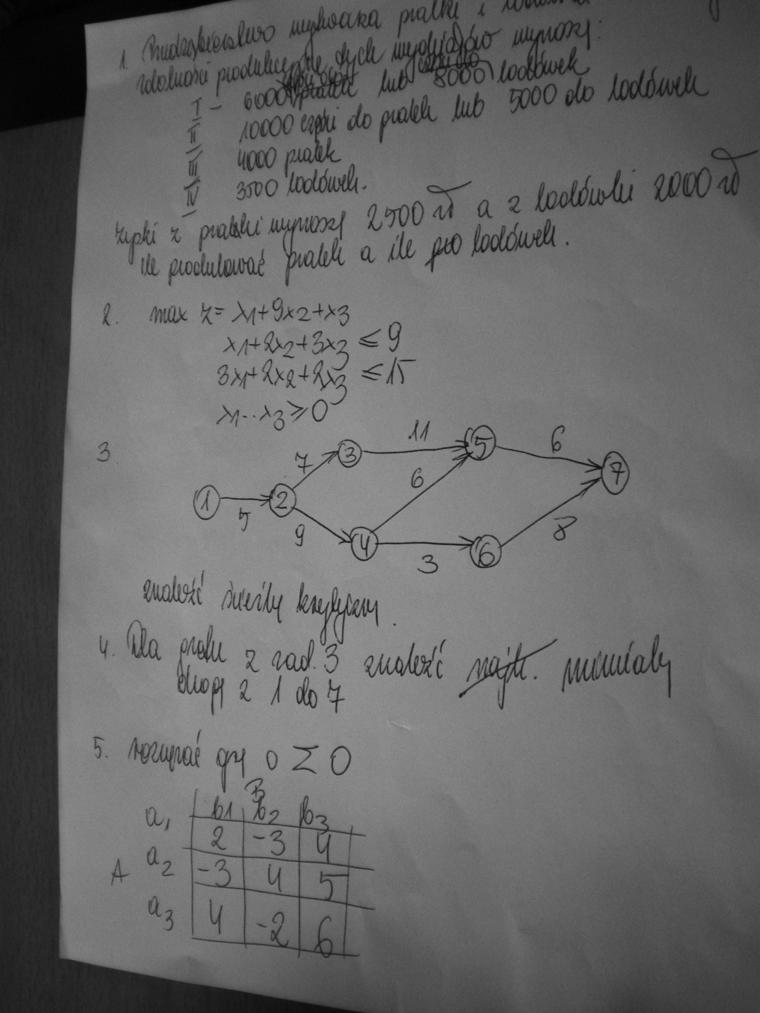 1. Przedsiębiorstwo wytwarza pralki i
zdolności produkcyjne tych wydziałów wynoszą:
I - 6000 pralek lub 8000 lodówek
II 10000 części do pralek lub 5000 do lodówek
III 4000 pralek
IV 3500 lodówek.
Zyski z pralki wynoszą 2500 zł a z lodówki 2000 zł
ile produkować pralek a ile lodówek.
2. max z = x1+9x2+x3
x1+2x2+3x3 ≤ 9
3x1+2x2+2x3 ≤ 15
x1...x3 ≥ 0
3
11
7 3 5 6
1 2 6 7
5 9 4 6 8
3
znaleść ścieżkę krytyczną.
4. Dla grafu z zad. 3 znaleść minimalny
drogę z 1 do 7
5. rozwiązać grę o Σ 0
B
b1 b2 b3
a1 2 -3 4
A a2 -3 4 5
a3 4 -2 6